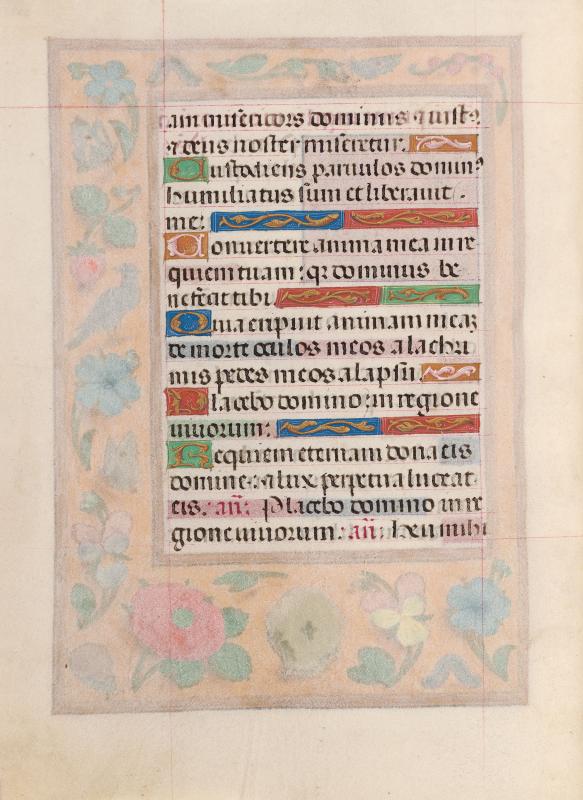 tam misericors dominus & iust9
& deus noster miseretur.
Custodiens paruulos domin9
humiliatus sum et liberauit
me:
Conuertere anima mea in re
quiem tuam: qz dominus be
nefecit tibi
Quia eripuit animam meaz
de morte oculos meos a lachri
mis pedes meos a lapsu.
Placebo domino: in regione
uiuorum:
Requiem eternam dona eis
domine: & lux perpetua luceat
eis. añ: Placebo domino in re
gione uiuorum. añ: heu mihi